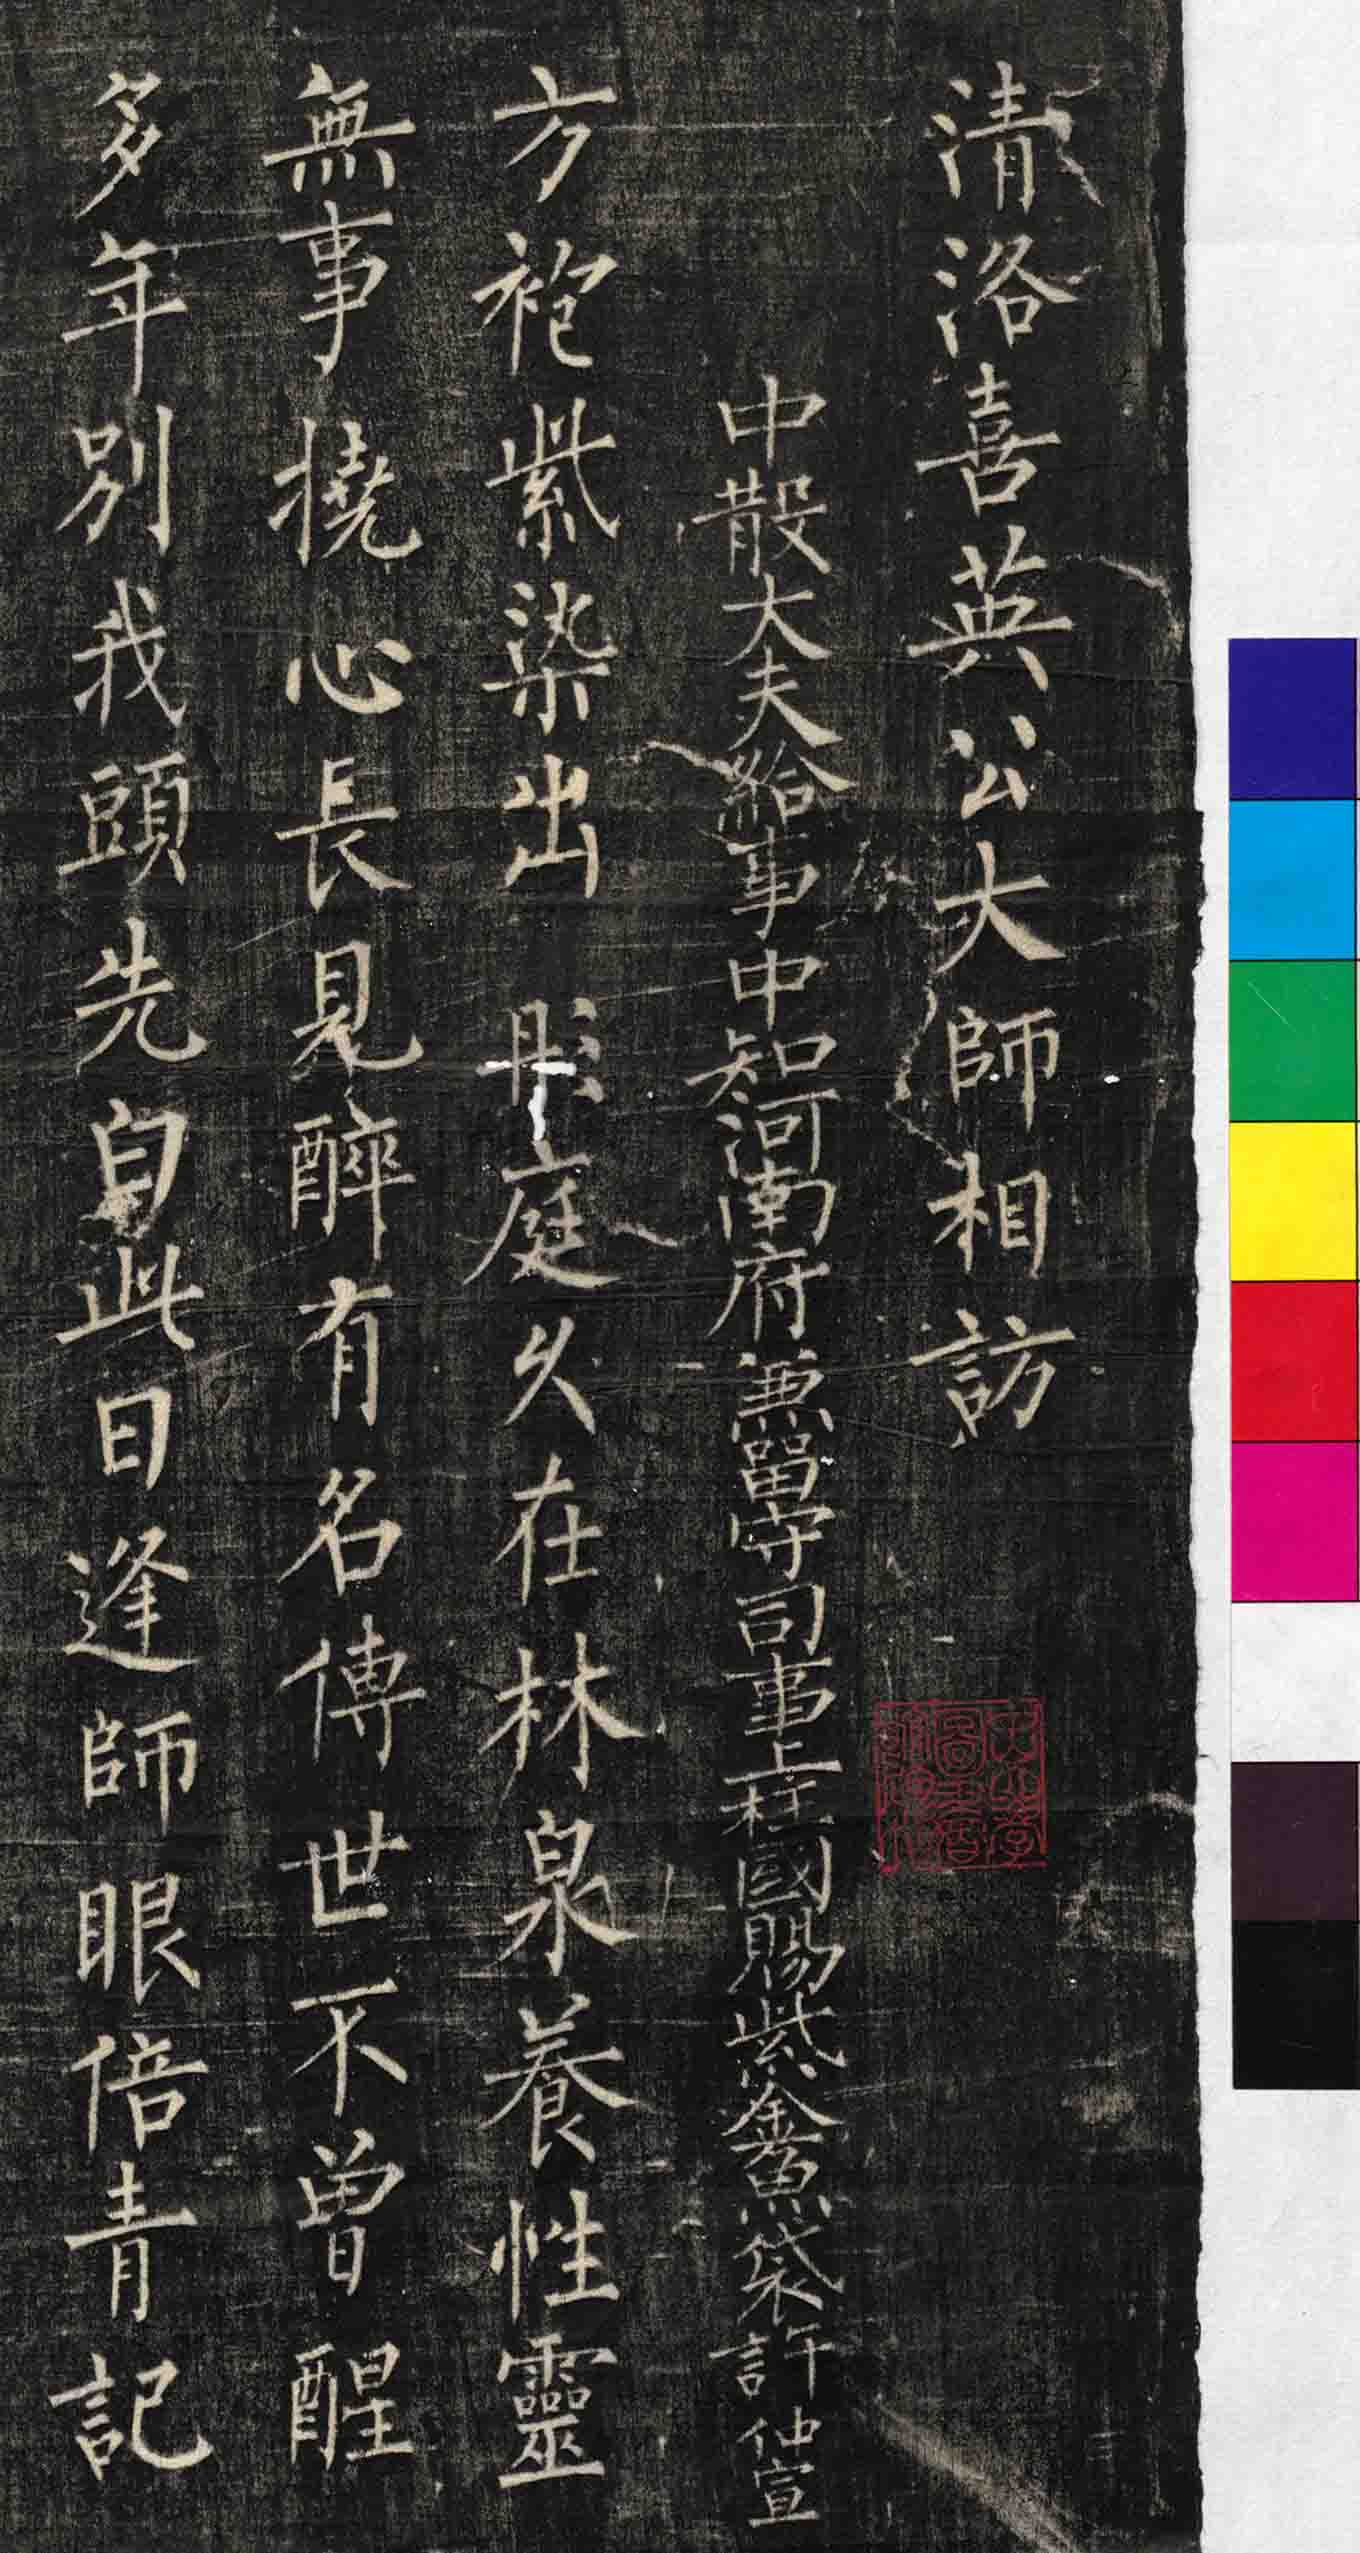 清洛喜英公大師相訪
中散大夫給事中知河南府兼留守司事上柱國賜紫金魚袋許仲宣
方袍紫染出彤庭久在林泉養性靈
無事撓心長見醉有名傳世不曾醒
多年別我頭先白此日逢師眼倍青記